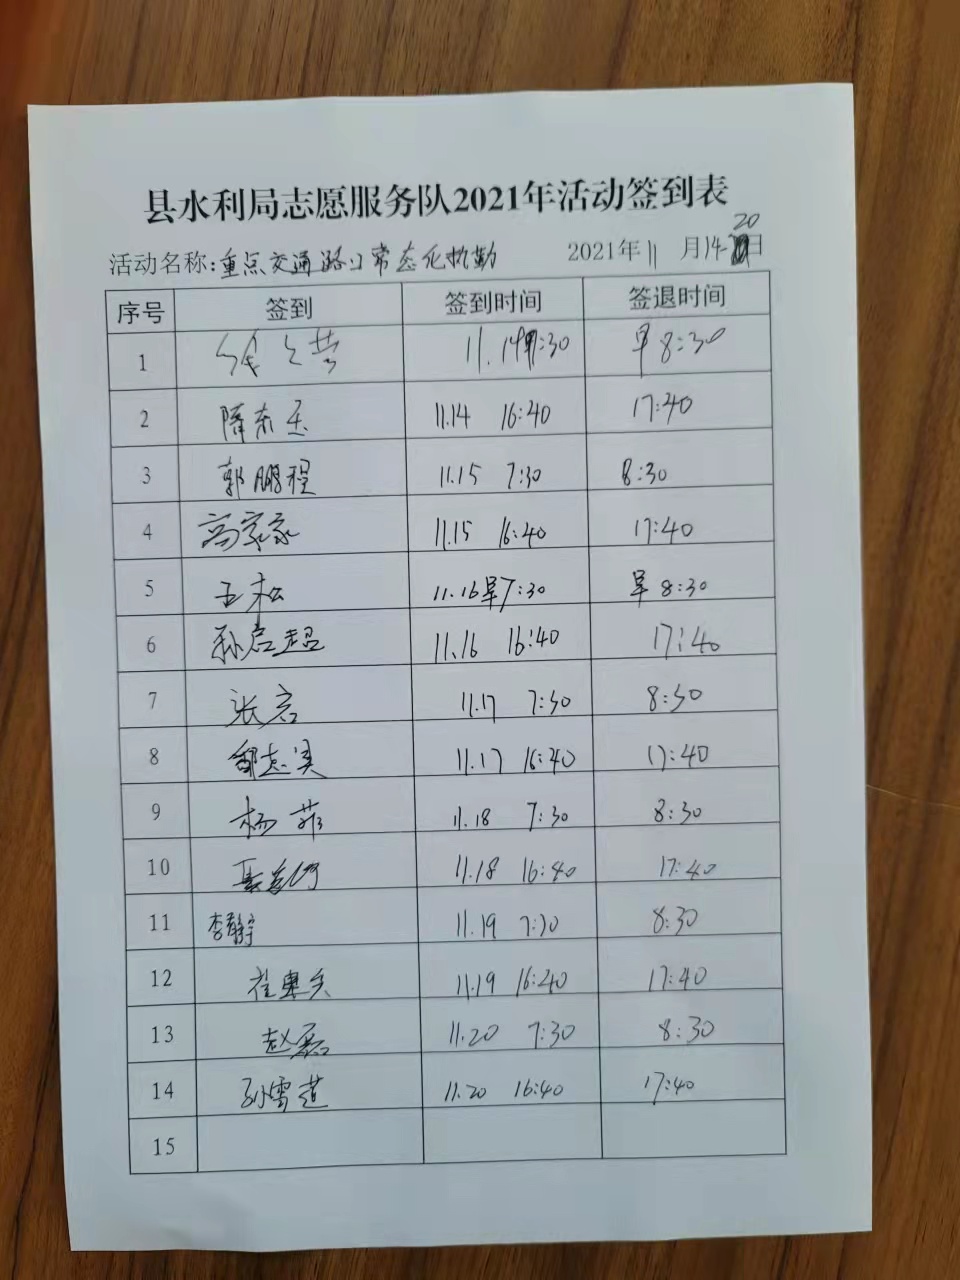 县水利局志愿服务队2021年活动签到表
活动名称:重点交通路口常态化执勤 2021年11月14-20日
序号 签到 签到时间 签退时间
1 11.14 7:30 早8:30
2 隋东玉 11.14 16:40 17:40
3 郭鹏程 11.15 7:30 8:30
4 高家家 11.15 16:40 17:40
5 王松 11.16早7:30 早8:30
6 孙启超 11.16 16:40 17:40
7 张岩 11.17 7:30 8:30
8 邹志昊 11.17 16:40 17:40
9 杨菲 11.18 7:30 8:30
10 11.18 16:40 17:40
11 李静宇 11.19 7:30 8:30
12 11.19 16:40 17:40
13 赵磊 11.20 7:30 8:30
14 孙雪莲 11.20 16:40 17:40
15